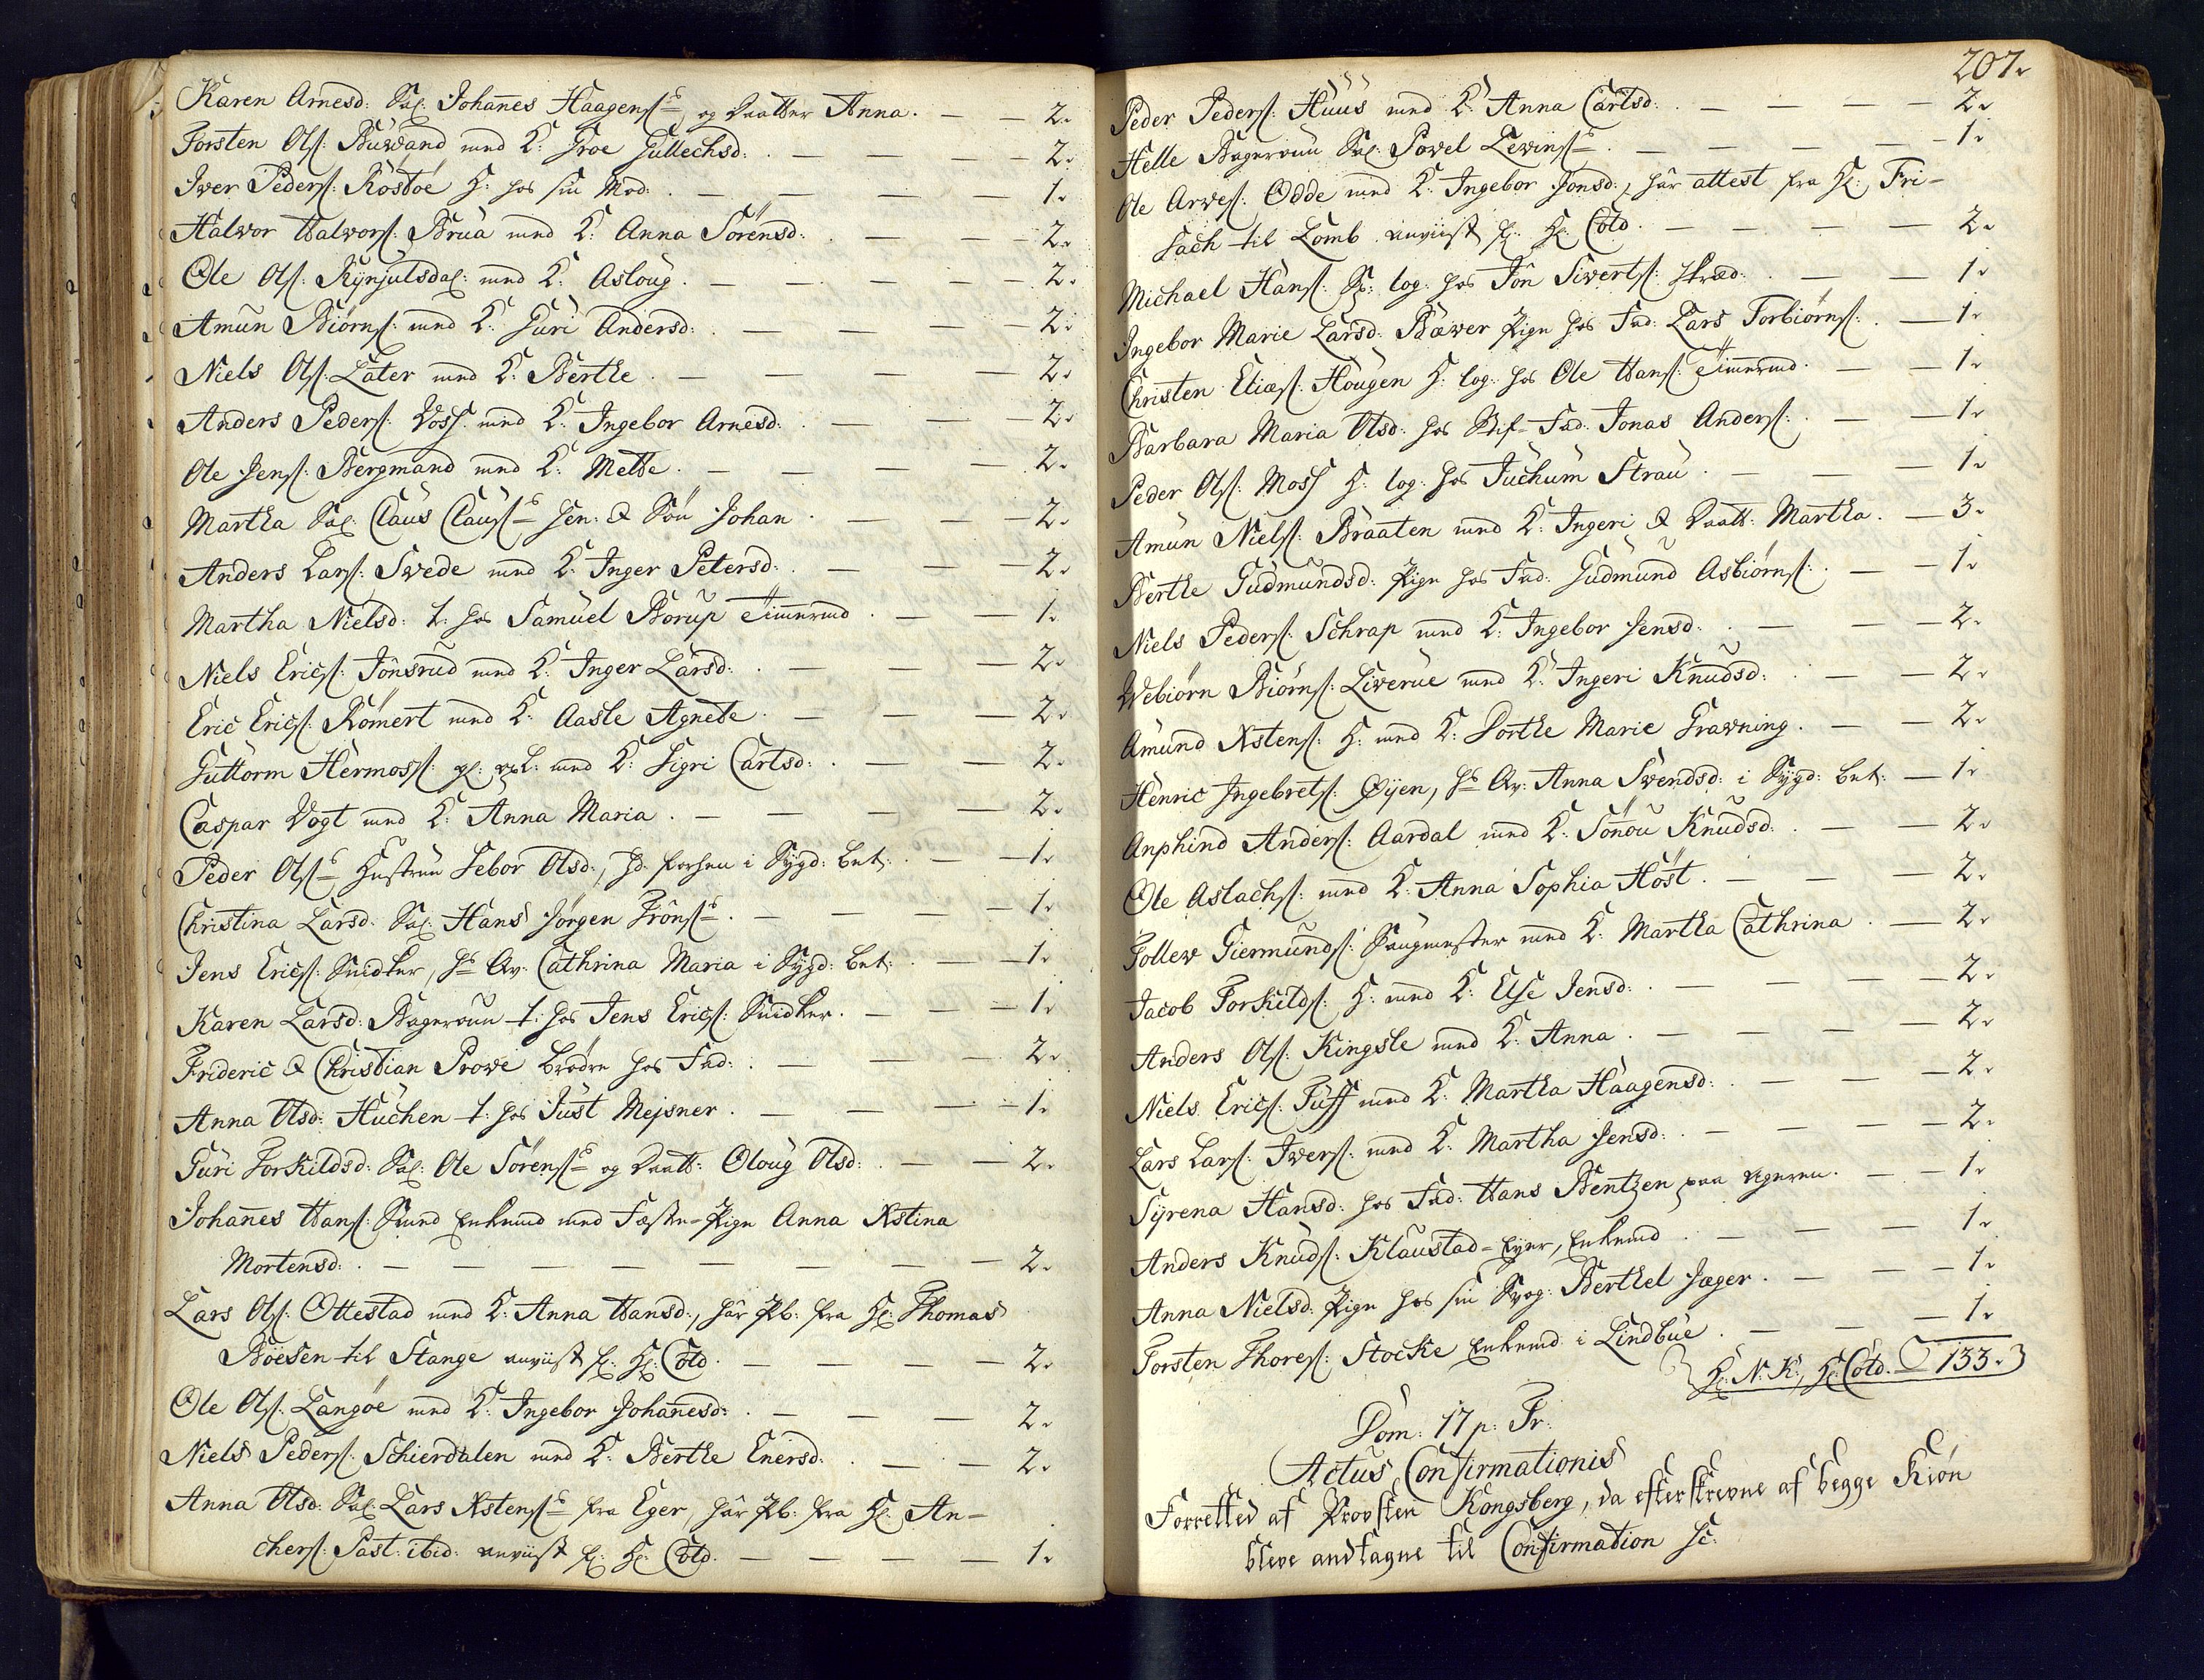 Karen Arnesd: Sal: Johanes Haagens: og Daatter Anna. — — 2.
Torsten Ols: Buvand med K: Groe Gullechsd: — — — 2.
Iver Peders: Röstöe H: hos sin Mod: — — — 1.
Halvor Halvors: Brua med K: Anna Sörensd: — — 2.
Ole Ols: Rynjulsdal: med K: Asloug. — — — 2.
Amun Biörns: med K: Guri Andersd: — — — 2.
Niels Ols: Later med K: Berthe. — — — 2.
Anders Peders: Voss. med K: Ingebor Arnesd: — — 2.
Ole Jens: Bergmand med K: Mette. — — — 2.
Martha Sal: Claus Claus: sen: & Sön Johan. — — 2.
Anders Lars: Svede med K: Inger Petersd: — — 2.
Martha Nielsd: t: hos Samuel Borup Timermd. — — 1.
Niels Erics: Jonsrud med K: Inger Larsd: — — 2.
Eric Erics: Römert med K: Aasle Agnete. — — 2.
Guttorm Hermoss: med K: Sigri Carlsd: — — 2.
Caspar Vogt med K: Anna Maria. — — — 2.
Peder Ols: Hustrue Sebor Olsd:, i Sygd: bet: — 1.
Christina Larsd: Sal: Hans Jörgen Fröns: — — — 1.
Jens Erics: Snidker, hs Qv: Cathrina Maria i Sygd: bet: — 1.
Karen Larsd: Bageroun t: hos Jens Erics: Snidker. — — 1.
Frideric & Christian Prowe brödre hos Fad: — — — 2.
Anna Olsd: Huchen t: hos Just Mejsner. — — — 1.
Guri Torkildsd: Sal: Ole Sörens: og Daatt: Oloug Olsd: — — 2.
Johanes Hans: Enkemd med Fæste-Pige Anna Xstina
Mortensd: — — — — — — 2.
Lars Ols: Ottestad med K: Anna Hansd:, har Pb: fra Hr: Thomas
Böesen til Stange anviist f: Hr: Cold. — — — 2.
Ole Ols: Langöe med K: Ingebor Johanesd: — — — 2.
Niels Peders: Schierdalen med K: Berthe Enersd: — — 2.
Anna Olsd: Sal: Lars Xstens: fra Eger, har Pb: fra Hr: An-
chers: Past: ibid: anviist f: Hr: Cold. — — — 1.
207.
Peder Peders: Huus med K: Anna Carlsd: — — — 2.
Helle Bageroun Sal: Powel Lewins: — — — 1.
Ole Arves: Odde med K: Ingebor Jonsd:, har attest fra Hr: Fri-
sach til Lomb anviist f: Hr: Cold. — — — 2.
Michael Hans: Sk: log: hos Jon Siverts: Skræd: — — 1.
Ingebor Marie Larsd: Bæwer Pige hos Fad: Lars Torbiörns: — 1.
Christen Elias: Hougen H: log: hos Ole Hans: Timermd. — — 1.
Barbara Maria Olsd: hos Stif-Fad: Jonas Anders: — — 1.
Peder Ols: Moss H: log: hos Juchum Strau. — — — 1.
Amun Niels: Braaten med K: Ingeri & Daatt: Martha. — 3.
Berthe Gudmundsd: Pige hos Fad: Gudmund Asbiörns: — — 1.
Niels Peders: Schrap med K: Ingebor Jensd: — — 2.
Webiörn Biörns: Liverue med K: Ingeri Knudsd: — — 2.
Amund Xstens: H: med K: Dorthe Marie Grawning. — — 2.
Henric Ingebrets: Öyen, hs Qv: Anna Swendsd: i Sygd: bet: — 1.
Anphind Anders: Aardal med K: Sönou Knudsd: — — 2.
Ole Aslachs: med K: Anna Sophia Höst. — — — 2.
Tollew Giermunds: Saugmester med K: Martha Cathrina — 2.
Jacob Torkilds: H: med K: Else Jensd: — — — 2.
Anders Ols: Kingsle med K: Anna. — — — 2.
Niels Erics: Tuff med K: Martha Haagensd: — — 2.
Lars Lars: Ivers: med K: Martha Jensd: — — — 2.
Syrena Hansd: hos Fad: Hans Bentzen paa Ageren. — — 1.
Anders Knuds: Klaustad-Eyer, Enkemd. — — — 1.
Anna Nielsd: Pige hos sin Svog: Berthel Jæger. — — — 1.
Torsten Thores: Stocke Enkemd i Lindbue. — — — 1.
Hr: N: K:, Hr: Cold. 133.
Dom: 17 p: Tr:
Actus Confirmationis
Forretted af Provsten Kongsberg, da efterskrevne af begge Kiøn
bleve andtagne til Confirmation sc: